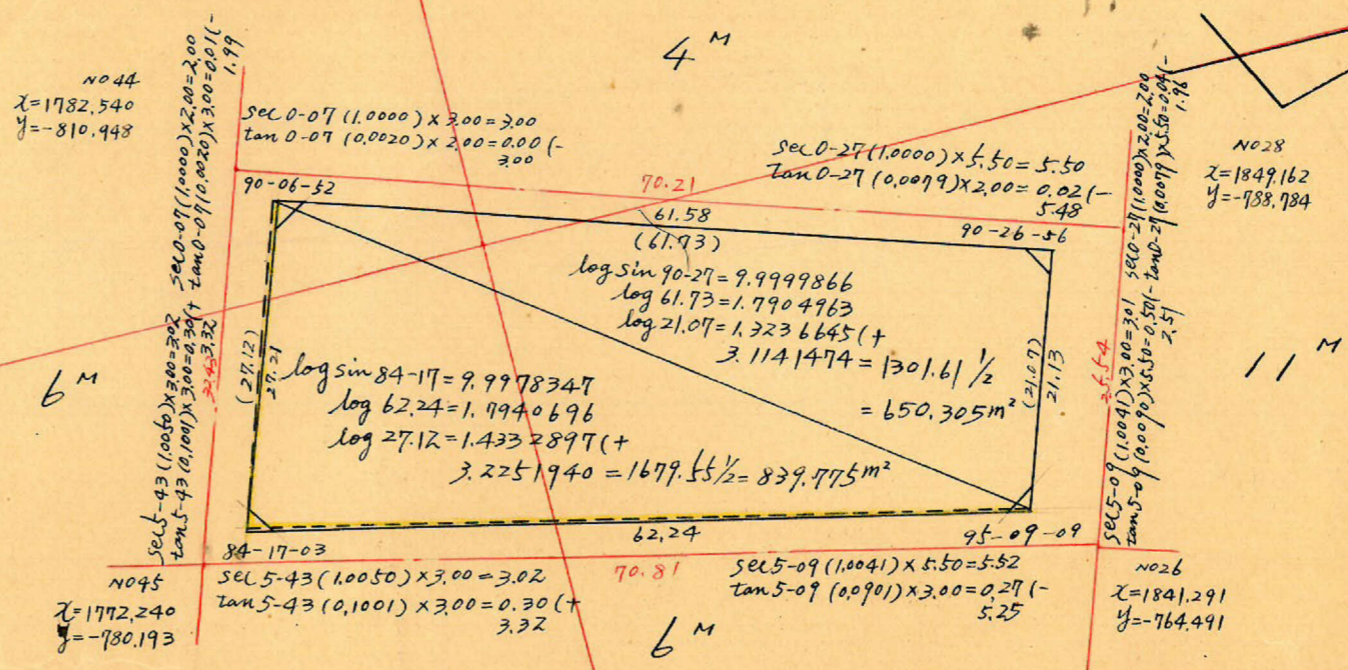 4 M
NO44
x=1782.540
y=-810.948
sec0-07(1.0000)×2.00=2.00
tan0-07(0.0020)×3.00=0.01(-
1.99
sec0-07(1.0000)×3.00=3.00
tan0-07(0.0020)×2.00=0.00(-
3.00
sec0-27(1.0000)×5.50=5.50
tan0-27(0.0079)×2.00=0.02(-
5.48
sec0-27(1.0000)×2.00=2.00
tan0-27(0.0079)×5.50=0.04(-
1.96
NO28
x=1849.162
y=-788.784
90-06-52
70.21
61.58
(61.73)
90-26-56
log sin 90-27=9.9999866
log 61.73=1.7904963
log 21.07=1.3236645(+
3.1141474=1301.61 1/2
=650.305m²
log sin 84-17=9.9978347
log 62.24=1.7940696
log 27.12=1.4332897(+
3.2251940=1679.55 1/2=839.775m²
6 M
sec5-43(1.0050)×3.00=3.02
tan5-43(0.1001)×3.00=0.30(+
3.32
(27.12)
27.21
(21.07)
21.13
25.54
sec5-09(1.0041)×3.00=3.01
tan5-09(0.0090)×5.50=0.50(-
2.51
11 M
62.24
84-17-03
95-09-09
70.81
NO45
x=1772.240
y=-780.193
sec5-43(1.0050)×3.00=3.02
tan5-43(0.1001)×3.00=0.30(+
3.32
sec5-09(1.0041)×5.50=5.52
tan5-09(0.0901)×3.00=0.27(-
5.25
NO26
x=1841.291
y=-764.491
6 M